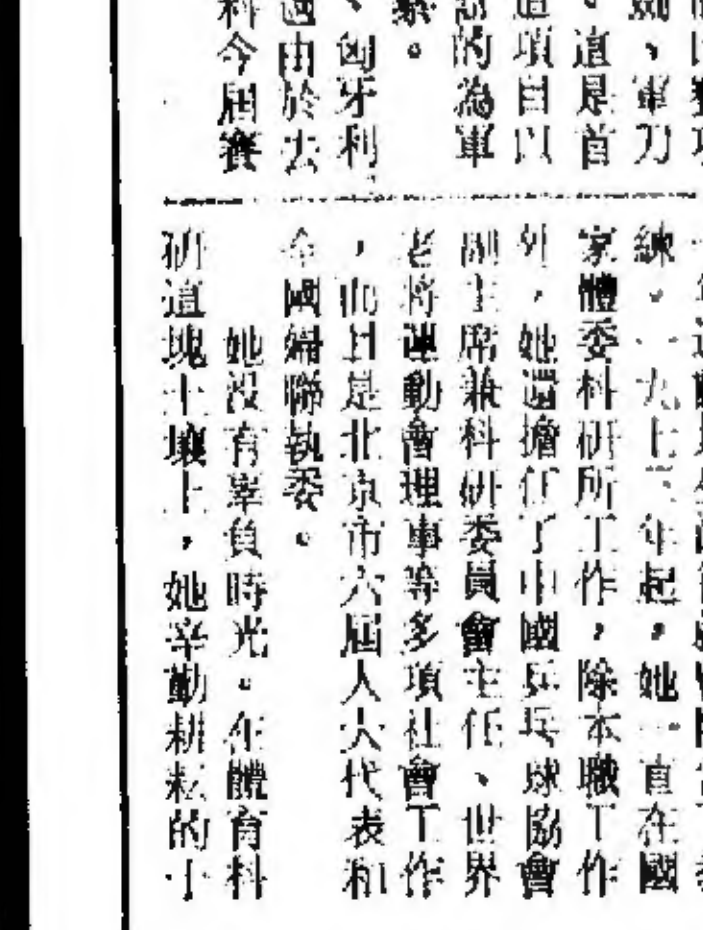 劍、軍刀
。這是首
這項目以
的為軍
繫。
、匈牙利
過由於去
科今屆賽
練。一九七三年起,她一直在國
家體委科研所工作,除本職工作
外,她還擔任了中國乒乓球協會
副主席兼科研委員會主任、世界
老將運動會理事等多項社會工作
,而且是北京市六屆人大代表和
全國婦聯執委。
她没有辜負時光。在體育科
研這塊土壤上,她辛勤耕耘的子